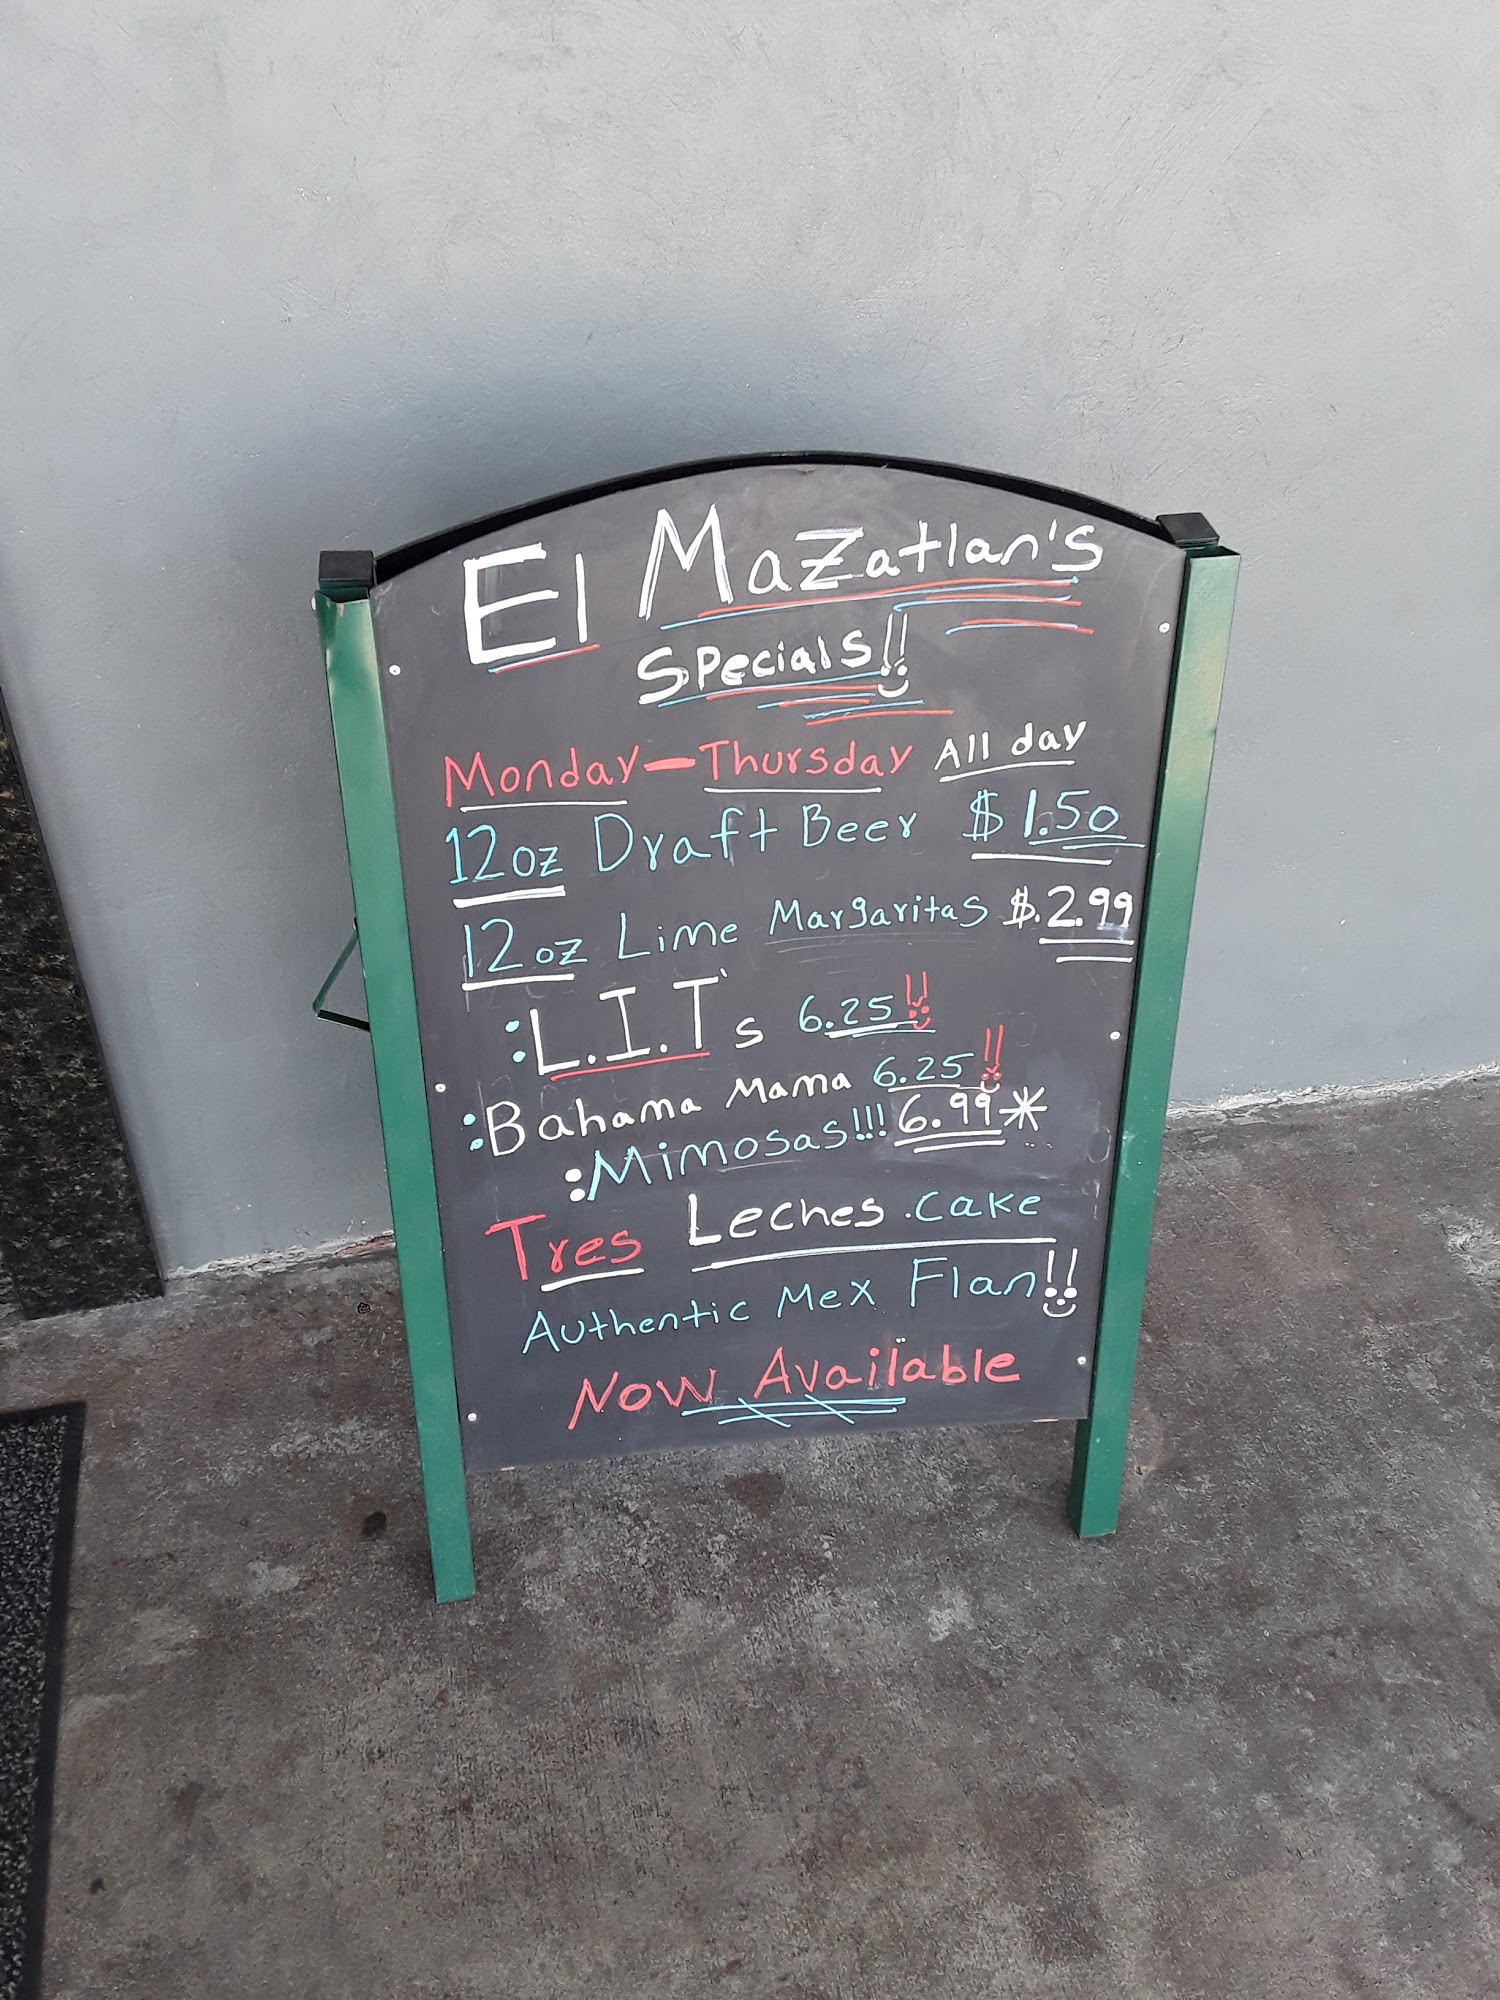 El Mazatlan's
Specials!!
Monday-Thursday All day
12oz Draft Beer $1.50
12oz Lime Margaritas $.2.99
:L.I.T's 6.25!!
:Bahama Mama 6.25!!
:Mimosas!!! 6.99*
Tres Leches.cake
Authentic Mex Flan!!
Now Available